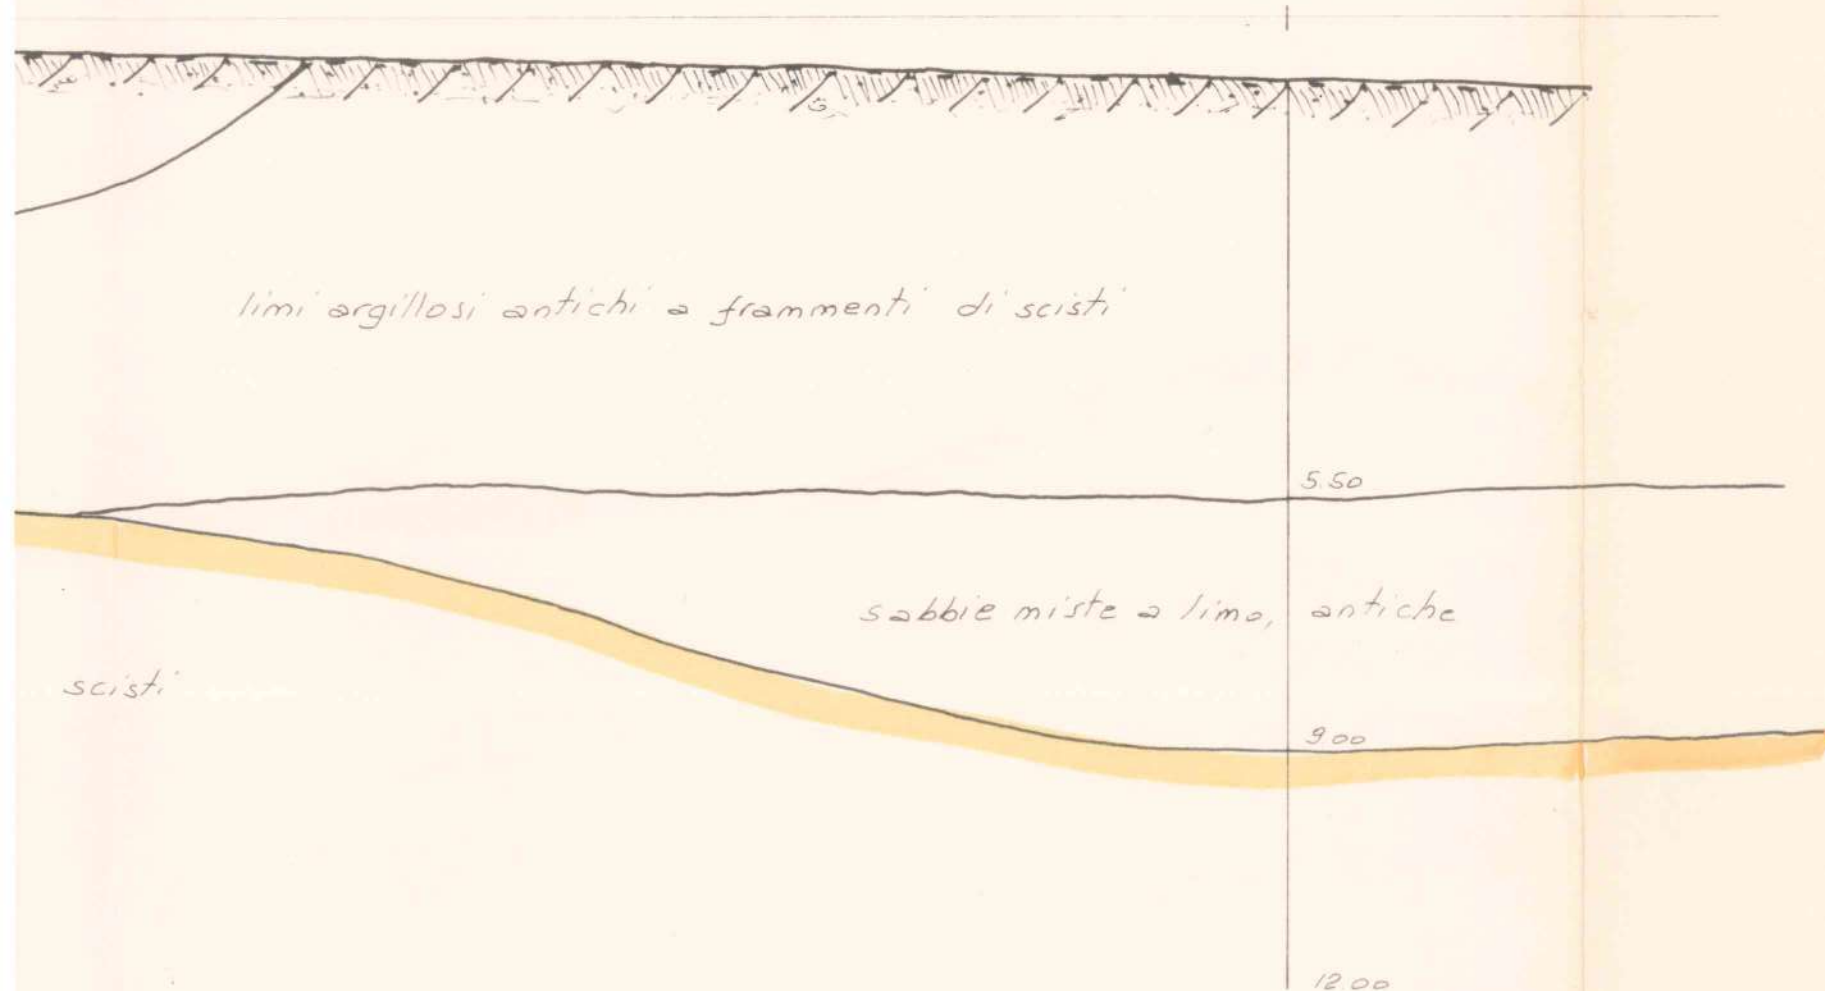 limi argillosi antichi a frammenti di scisti
5.50
sabbie miste a limo, antiche
scisti
9.00
12.00